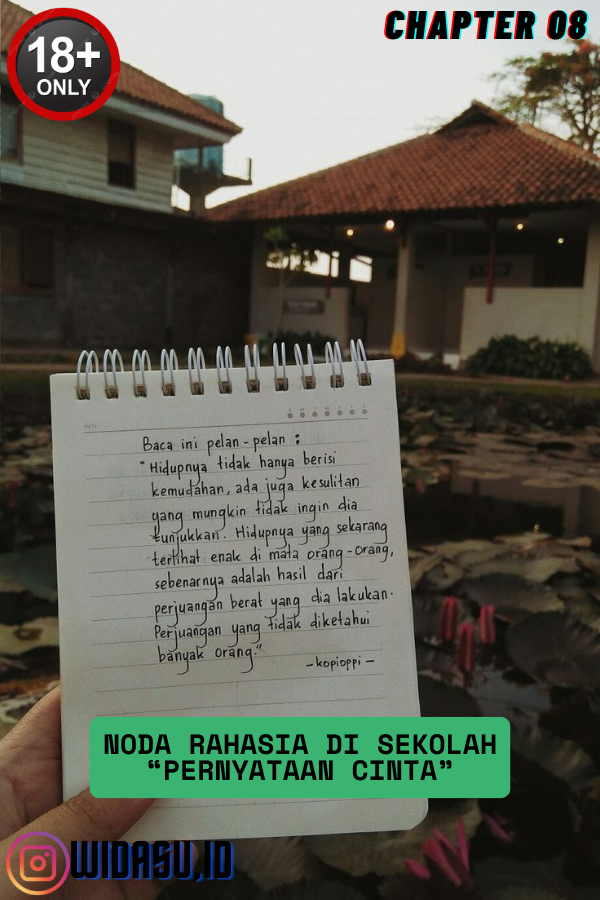 18+
ONLY
CHAPTER 08
Baca ini pelan-pelan :
"Hidupnya tidak hanya berisi
kemudahan, ada juga kesulitan
yang mungkin tidak ingin dia
tunjukkan. Hidupnya yang sekarang
terlihat enak di mata orang-orang,
sebenarnya adalah hasil dari
perjuangan berat yang dia lakukan.
Perjuangan yang tidak diketahui
banyak orang."
-kopioppi-
NODA RAHASIA DI SEKOLAH
“PERNYATAAN CINTA”
WIDASU,ID